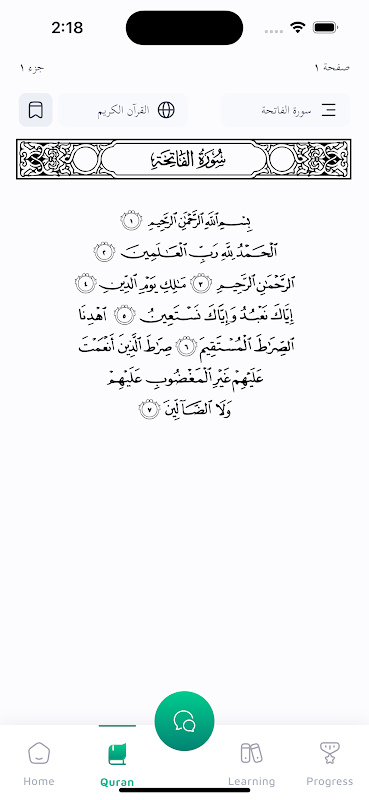 2:18
صفحة ١
جزء ١
سورة الفاتحة
القرآن الكريم
سُورَةُ الفَاتِحَةِ
بِسْمِ ٱللَّهِ ٱلرَّحْمَٰنِ ٱلرَّحِيمِ ١
ٱلْحَمْدُ لِلَّهِ رَبِّ ٱلْعَٰلَمِينَ ٢
ٱلرَّحْمَٰنِ ٱلرَّحِيمِ ٣ مَٰلِكِ يَوْمِ ٱلدِّينِ ٤
إِيَّاكَ نَعْبُدُ وَإِيَّاكَ نَسْتَعِينُ ٥ ٱهْدِنَا
ٱلصِّرَٰطَ ٱلْمُسْتَقِيمَ ٦ صِرَٰطَ ٱلَّذِينَ أَنْعَمْتَ
عَلَيْهِمْ غَيْرِ ٱلْمَغْضُوبِ عَلَيْهِمْ
وَلَا ٱلضَّآلِّينَ ٧
Home
Quran
Learning
Progress